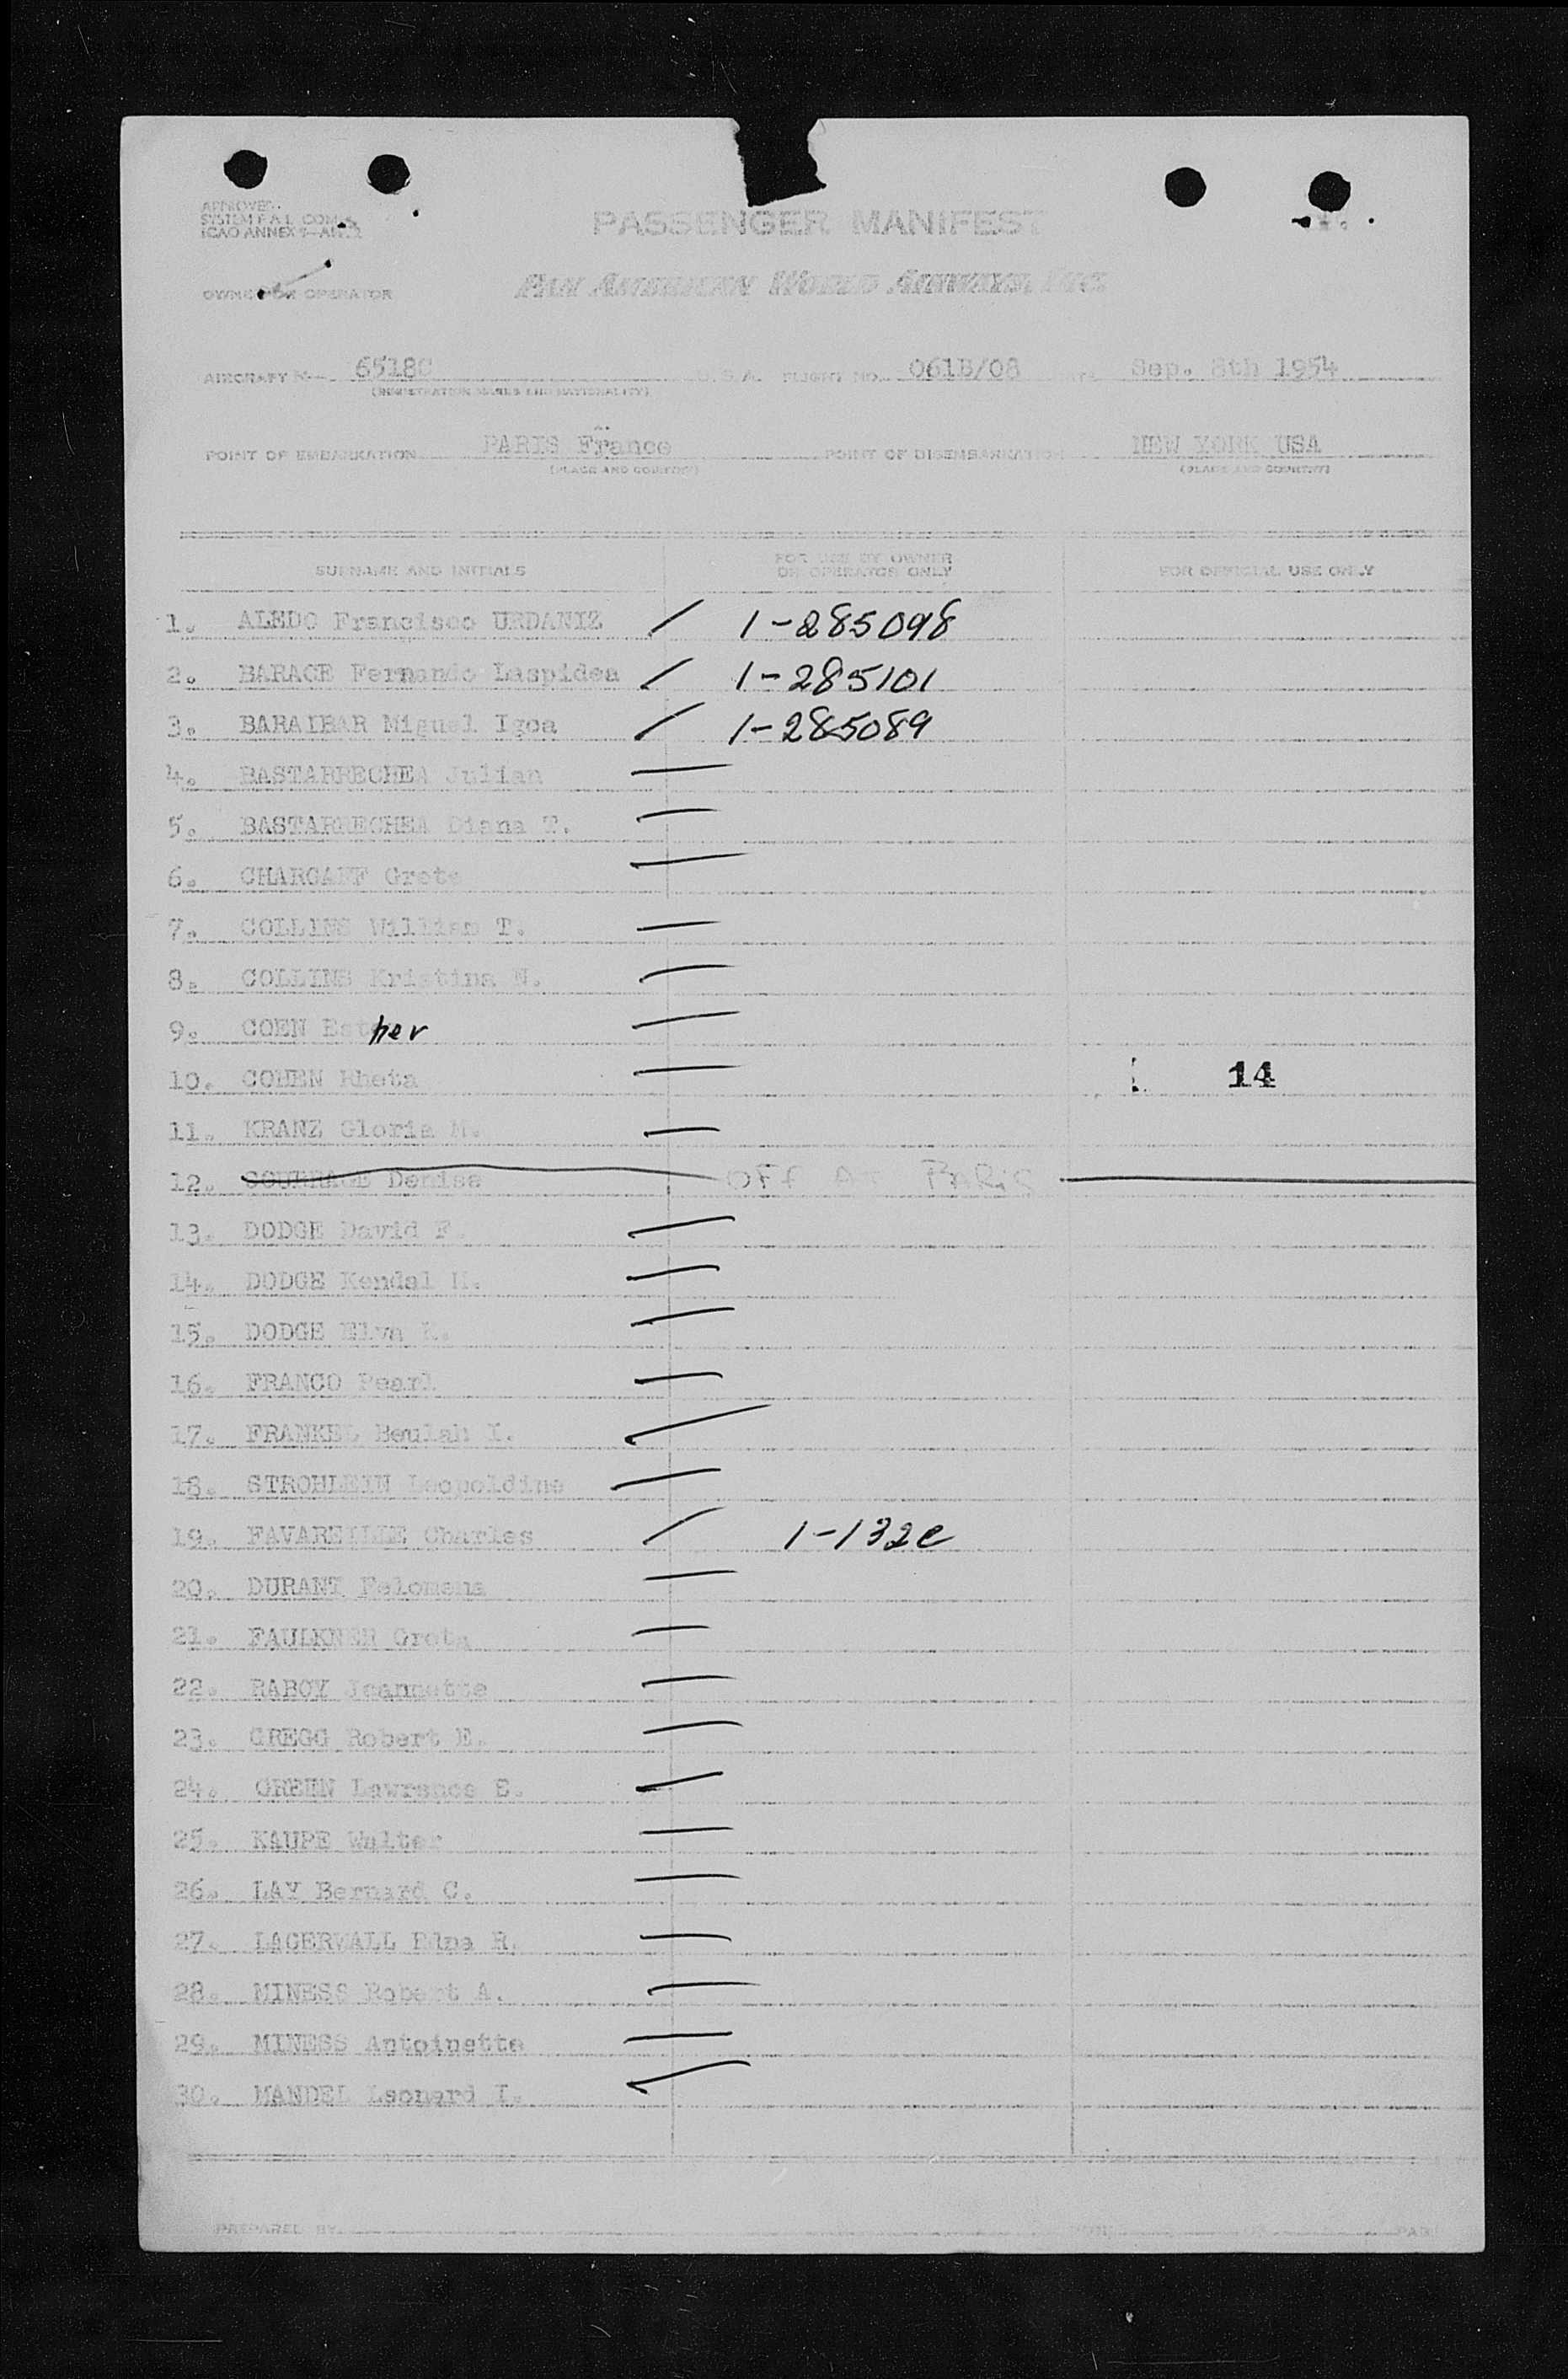 APPROVED.
SYSTEM F.A.L. COM.
ICAO ANNEX 9—
PASSENGER MANIFEST
1.
OWNER OR OPERATOR
PAN AMERICAN WORLD AIRWAYS, INC.
AIRCRAFT N— 6518C U.S.A. FLIGHT NO. 061B/08 DATE Sep. 8th 1954
(REGISTRATION MARKS AND NATIONALITY)
POINT OF EMBARKATION PARIS France POINT OF DISEMBARKATION NEW YORK USA
(PLACE AND COUNTRY) (PLACE AND COUNTRY)
SURNAME AND INITIALS FOR USE BY OWNER OR OPERATOR ONLY FOR OFFICIAL USE ONLY
1. ALEDO Francisco URDANIZ / 1-285098
2. BARACE Fernando Laspidea / 1-285101
3. BARAIBAR Miguel Igoa / 1-285089
4. BASTARRECHEA Julian —
5. BASTARRECHEA Diana T. —
6. CHARGAFF Grete —
7. COLLINS William T. —
8. COLLINS Kristina N. —
9. COEN Esther —
10. COHEN Rheta — 14
11. KRANZ Gloria M. —
12. Denise OFF AT PARIS
13. DODGE David F. —
14. DODGE Kendal H. —
15. DODGE Elva K. —
16. FRANCO Pearl —
17. FRANKEL Beulah I. —
18. STROHLEIN Leopoldine —
19. FAVAREILLE Charles / 1-132e
20. DURANT Felomena —
21. FAULKNER Greta —
22. RABOY Jeannette —
23. GREGG Robert E. —
24. GREEN Lawrence E. —
25. KAUPE Walter —
26. LAY Bernard C. —
27. LAGERWALL Edna R. —
28. MINESS Robert A. —
29. MINESS Antoinette —
30. MANDEL Leonard I. —
PREPARED BY